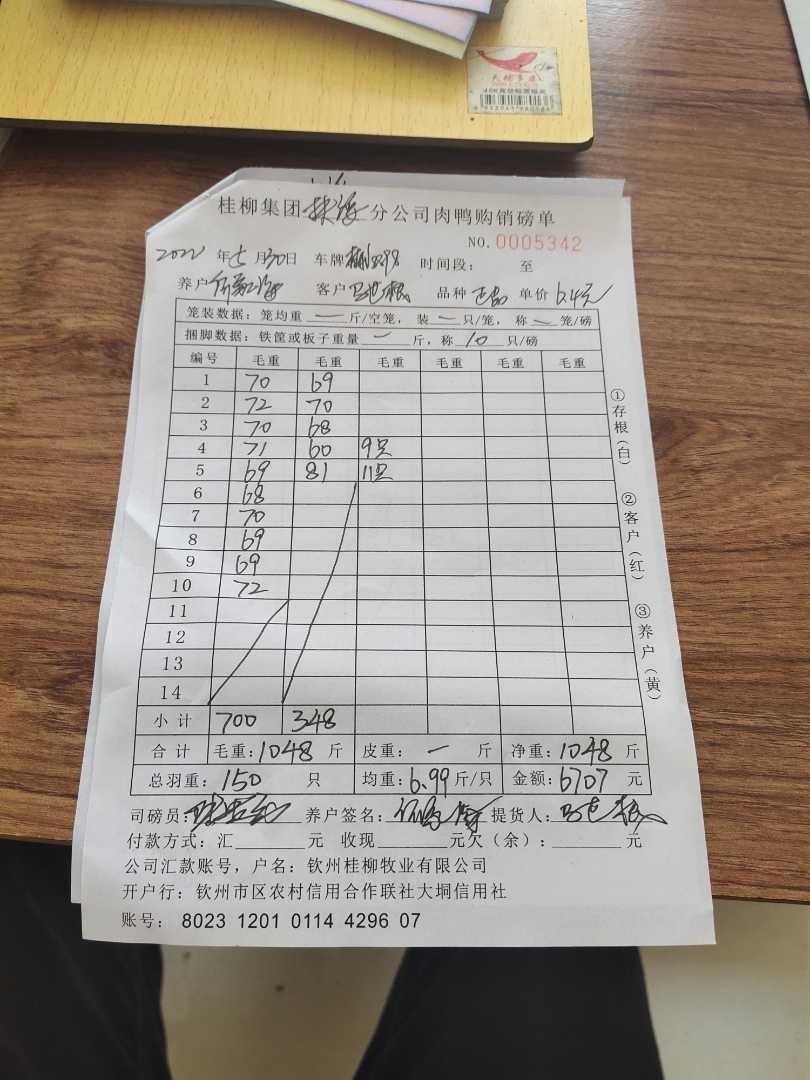 桂柳集团 分公司肉鸭购销磅单
NO.0005342
2022年七月30日 车牌 时间段： 至
养户 客户 品种 正品 单价 6.4元
笼装数据：笼均重 一 斤/空笼，装 一 只/笼，称 一 笼/磅
捆脚数据：铁筐或板子重量 一 斤，称 10 只/磅
编号 毛重 毛重 毛重 毛重 毛重 毛重
1 70 69
2 72 70
3 70 68
4 71 60 9只
5 69 81 11只
6 68
7 70
8 69
9 69
10 72
11
12
13
14
小计 700 348
合计 毛重：1048 斤 皮重：一 斤 净重：1048 斤
总羽重：150 只 均重：6.99 斤/只 金额：6707 元
司磅员： 养户签名： 提货人：
付款方式：汇 元 收现 元欠（余）： 元
公司汇款账号，户名：钦州桂柳牧业有限公司
开户行：钦州市区农村信用合作联社大垌信用社
账号： 8023 1201 0114 4296 07
①存根（白）
②客户（红）
③养户（黄）